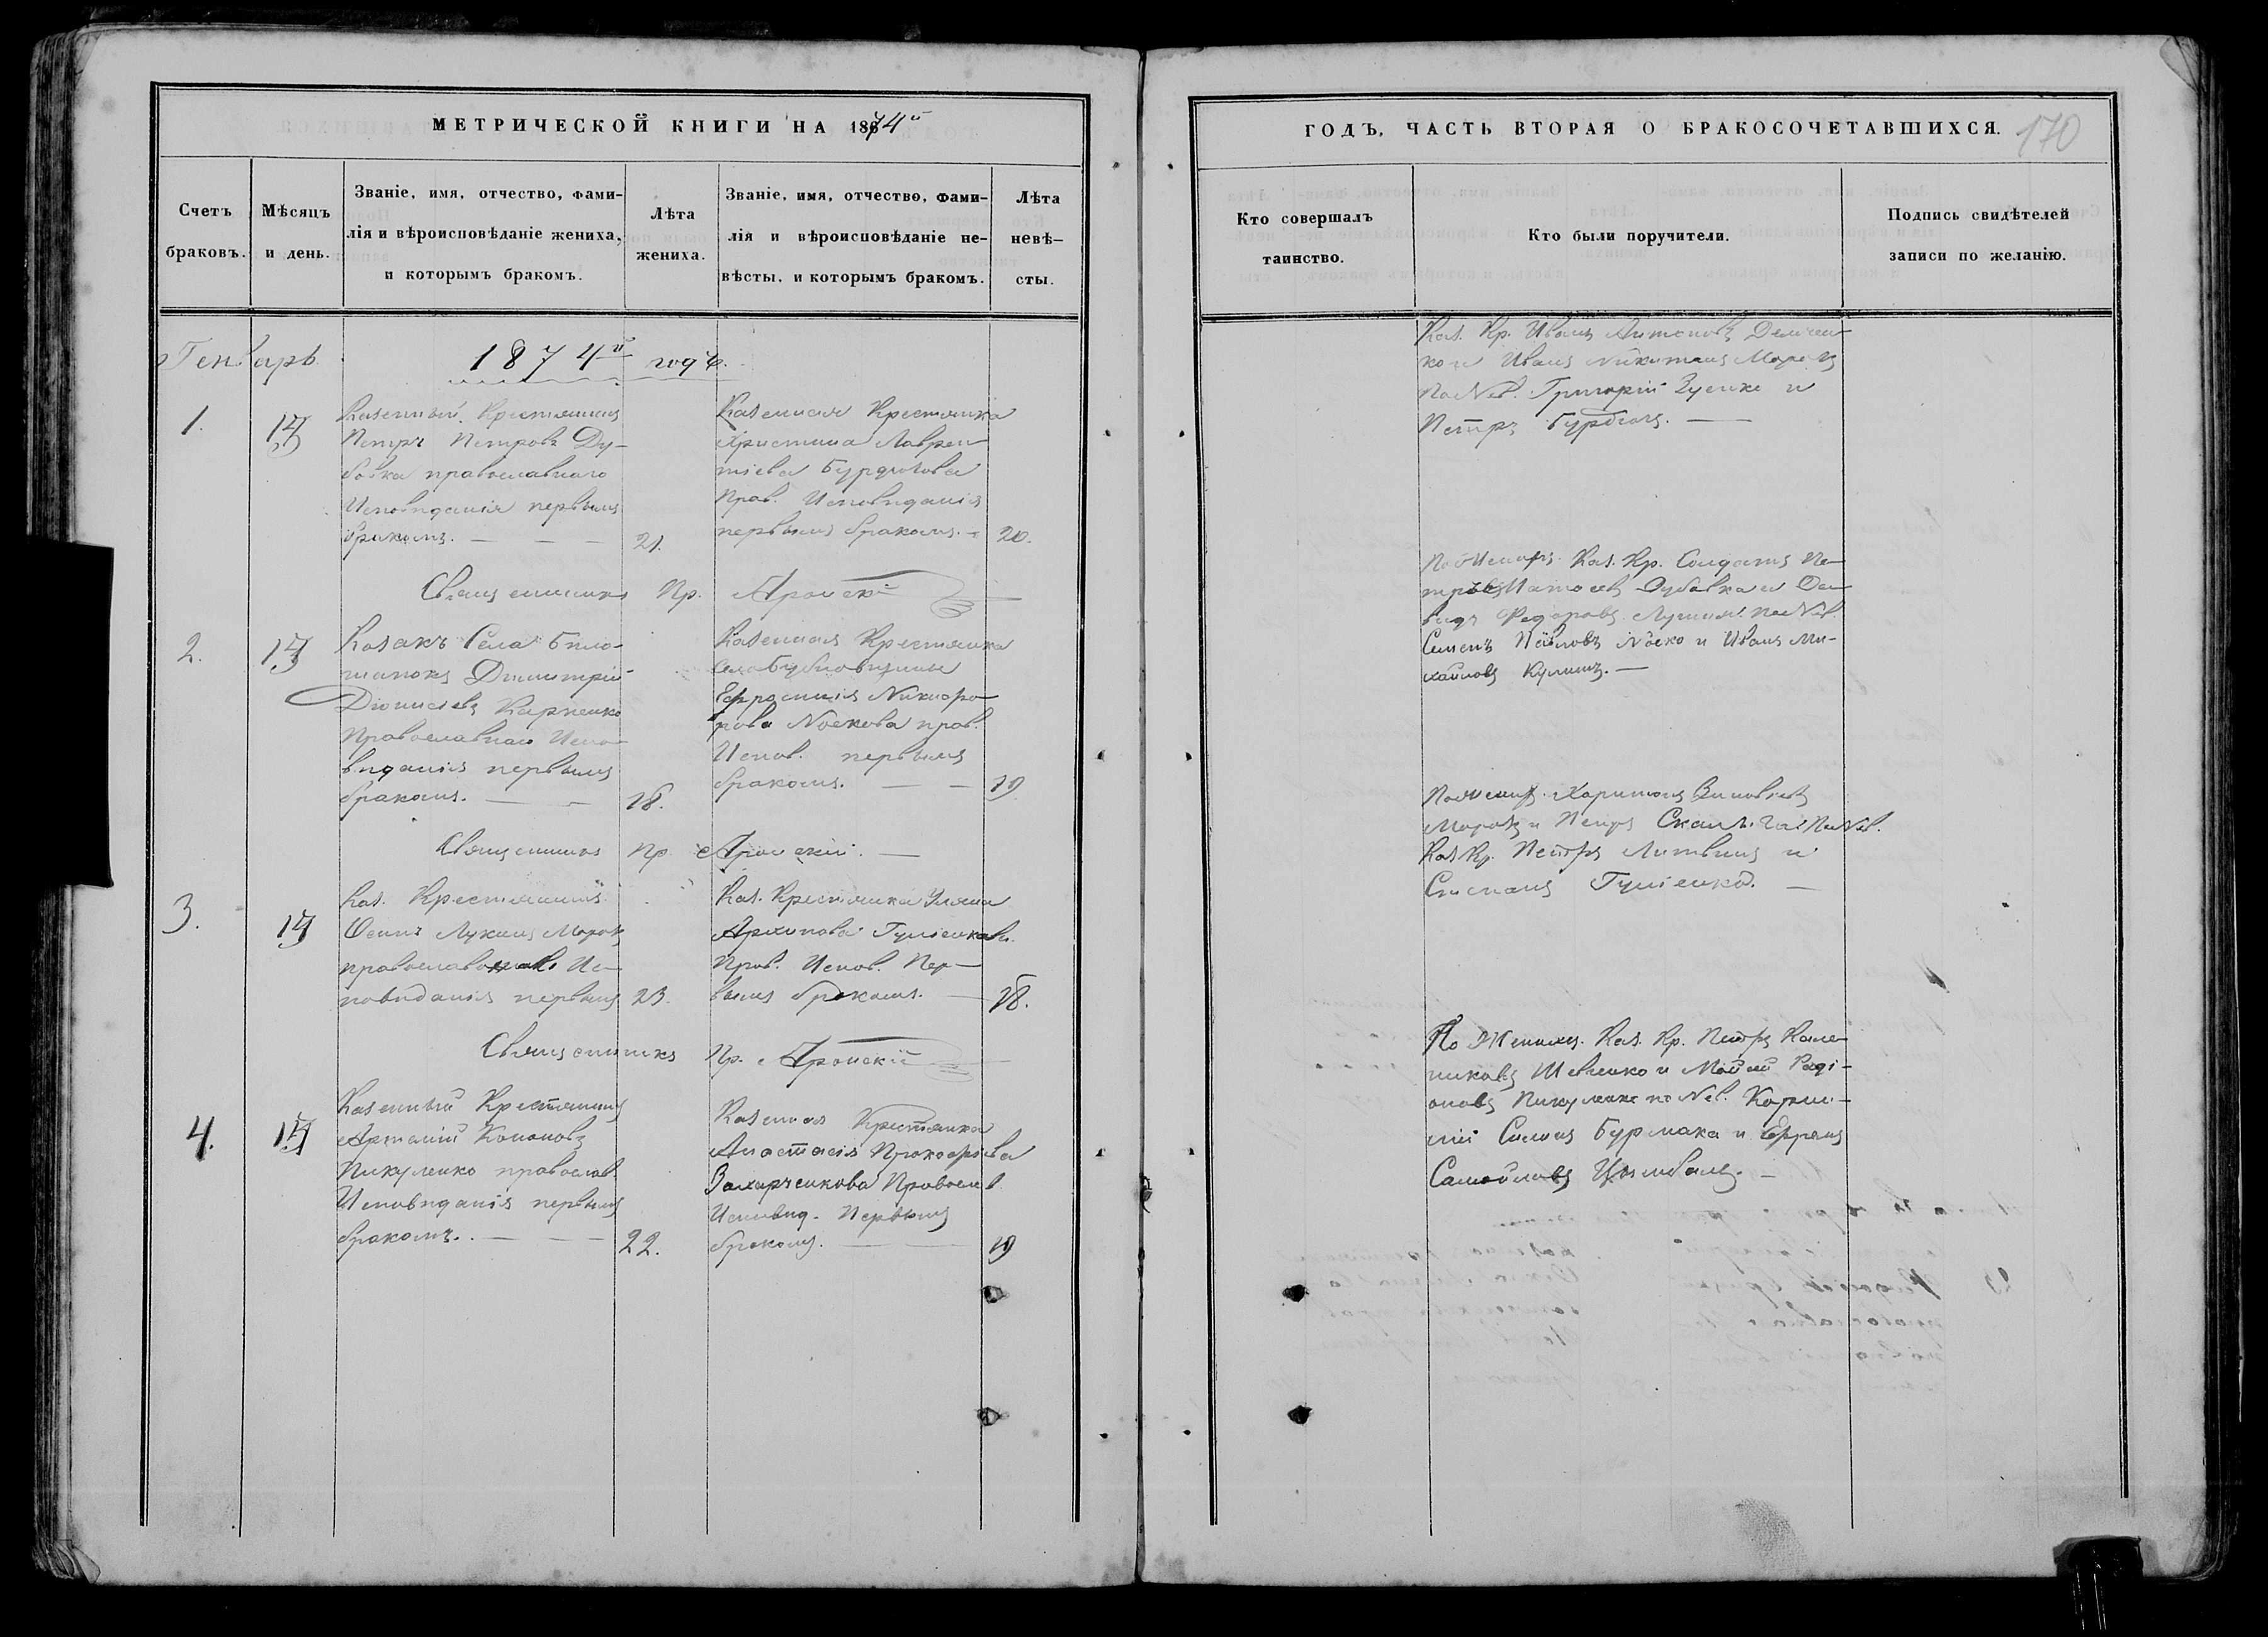 МЕТРИЧЕСКОЙ КНИГИ НА 1874й
Счетъ браковъ.
Мѣсяцъ и день.
Званіе, имя, отчество, фами-
лія и вѣроисповѣданіе жениха,
и которымъ бракомъ.
Лѣта жениха.
Званіе, имя, отчество, фами-
лія и вѣроисповѣданіе не-
вѣсты, и которымъ бракомъ.
Лѣта невѣ-
сты.
Генварь
1874й годъ.
1.
Казенный Крестянинъ
Петръ Петровъ Ду-
бовка православнаго
Исповѣданія первымъ
бракомъ.
21.
Казенная Крестянка
Христина Лаврен-
тіева Бурдюгова
Прав. Исповѣданія
первымъ бракомъ.
20.
Священникъ Пр. Яронскій
2.
13
Козакъ Села Бѣло-
Димитрій
Діонисіевъ Карпенко
Православнаго Испо-
вѣданія первымъ
бракомъ.
18.
Казенная Крестянка
Села
Ефросинія Никифо-
рова Носкова прав.
Испов. первымъ
бракомъ.
19
Священникъ Пр. Яронскій.
3.
Каз. Крестянинъ
Осипъ Лукинъ Морозъ
Ис-
повѣданія первымъ
23.
Каз. Крестянка Уляна
Архипова
Прав. Испов. Пер-
вымъ бракомъ.
18.
Священникъ Пр. Яронскій
4.
Казенный Крестянинъ
Артемій Кононовъ
Пикуленко православ.
Исповѣданія первымъ
бракомъ.
22.
Казенная Крестянка
Анастасія Прокофіева
Захарченкова Православ.
Исповѣд. Первымъ
бракомъ.
19
ГОДЪ, ЧАСТЬ ВТОРАЯ О БРАКОСОЧЕТАВШИХСЯ.
170
Кто совершалъ таинство.
Кто были поручители.
Подпись свидѣтелей
записи по желанію.
Каз. Кр. Иванъ Антоновъ Демчен-
ко и Иванъ Никитинъ Морозъ
По Нев. Григорій Зуенко и
Петръ
Каз. Кр. Солдатъ Пе-
Дубовка и Да-
видъ Федоровъ По Нев.
Семенъ Павловъ Носко и Иванъ Ми-
хайловъ Кулишъ.
Харитонъ Зиновіевъ
Морозъ и Петръ По Нев.
Каз Кр. Петръ Литвинъ и
Степанъ
По Жениху. Каз. Кр. Петръ Кале-
никовъ Шевченко и Моисей Роді-
оновъ Пикуленко по Нев. Корни-
лій Симонъ Бурмака и Ефремъ
Самойловъ Цымбалъ.